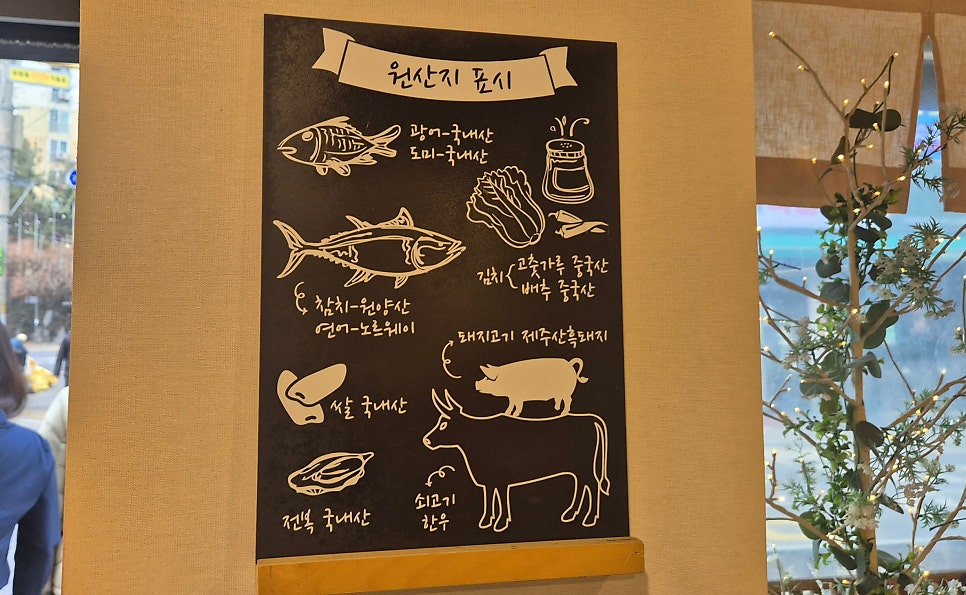 원산지 표시
광어-국내산
도미-국내산
김치{고춧가루 중국산
배추 중국산
참치-원양산
연어-노르웨이
돼지고기 제주산흑돼지
쌀 국내산
쇠고기
한우
전복 국내산